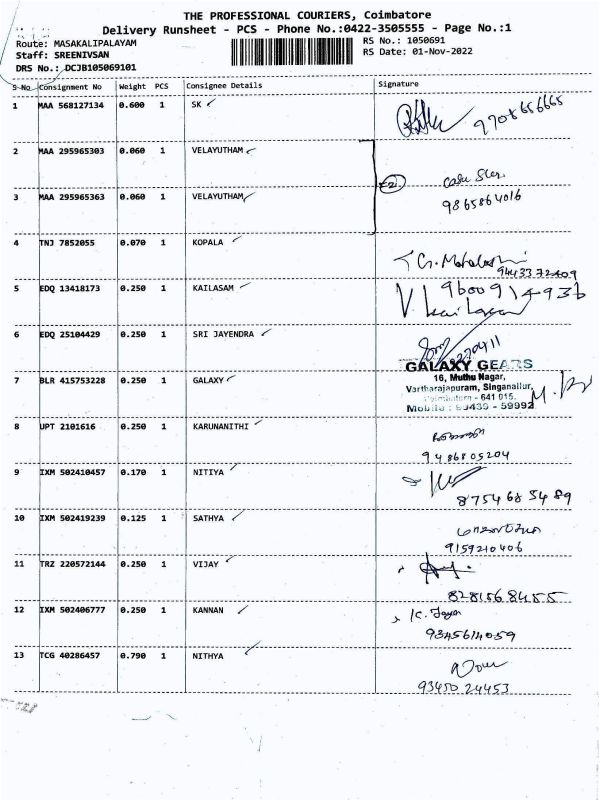 THE PROFESSIONAL COURIERS, Coimbatore
Delivery Runsheet - PCS - Phone No.:0422-3505555 - Page No.:1
Route: MASAKALIPALAYAM
RS No.: 1050691
Staff: SREENIVSAN
RS Date: 01-Nov-2022
DRS No.: DCJB105069101
S No Consignment No Weight PCS Consignee Details Signature
1 MAA 568127134 0.600 1 SK
9708656665
2 MAA 295965303 0.060 1 VELAYUTHAM
3 MAA 295965363 0.060 1 VELAYUTHAM
9865864016
4 TNJ 7852055 0.070 1 KOPALA
9443372409
5 EDQ 13418173 0.250 1 KAILASAM
9600914936
V. Kailasam
6 EDQ 25104429 0.250 1 SRI JAYENDRA
7 BLR 415753228 0.250 1 GALAXY
GALAXY GEARS
16, Muthu Nagar,
Vartharajapuram, Singanallur,
Coimbatore - 641 015.
Mobile : 93439 - 59992
8 UPT 2101616 0.250 1 KARUNANITHI
9486805204
9 IXM 502410457 0.170 1 NITIYA
8754685489
10 IXM 502419239 0.125 1 SATHYA
9159210406
11 TRZ 220572144 0.250 1 VIJAY
8281568455
12 IXM 502406777 0.250 1 KANNAN
9345614059
13 TCG 40286457 0.790 1 NITHYA
9345024453